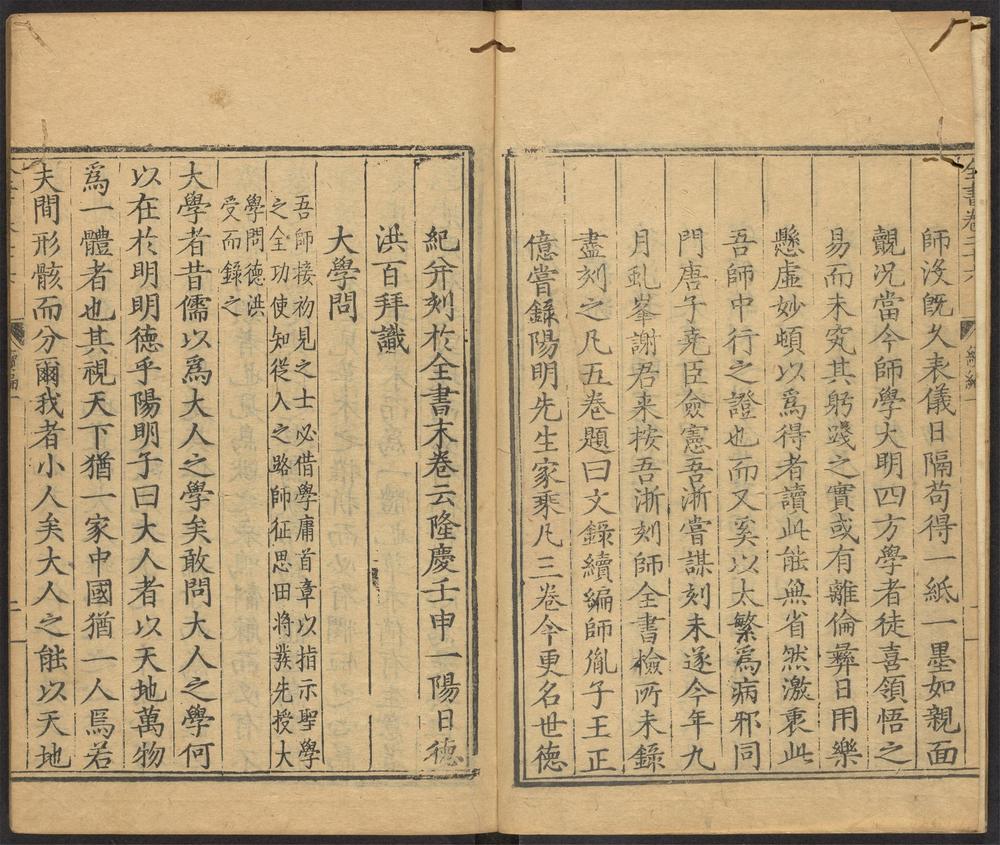 全書卷二十六
師沒旣久表儀日隔苟得一紙一墨如親面
覿况當今師學大明四方學者徒喜領悟之
易而未究其躬踐之實或有離倫彞日用樂
懸虛妙頓以爲得者讀此能無省然激衷此
吾師中行之證也而又奚以太繁爲病邪同
門唐子堯臣僉憲吾浙嘗謀刻未遂今年九
月虬峯謝君来按吾浙刻師全書檢所未錄
盡刻之凡五卷題曰文錄續編師胤子王正
億嘗錄陽明先生家乘凡三卷今更名世德
紀并刻於全書末卷云隆慶壬申一陽日德
洪百拜識
大學問
吾師接初見之士必借學庸首章以指示聖學
之全功使知從入之路師征思田將發先授大
學問德洪
受而錄之
大學者昔儒以爲大人之學矣敢問大人之學何
以在於明明德乎陽明子曰大人者以天地萬物
爲一體者也其視天下猶一家中國猶一人焉若
夫間形骸而分爾我者小人矣大人之能以天地